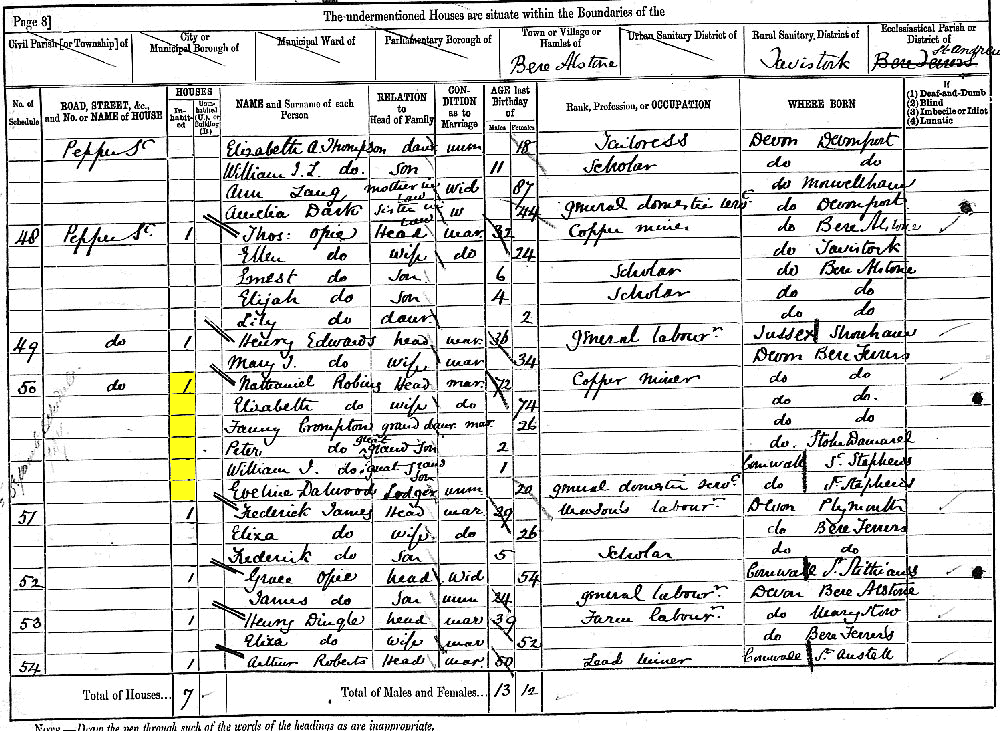 Page 8]
The undermentioned Houses are situate within the Boundaries of the
Civil Parish [or Township] of
City or Municipal Borough of
Municipal Ward of
Parliamentary Borough of
Town or Village or Hamlet of
Bere Alstone
Urban Sanitary District of
Rural Sanitary, District of
Tavistock
Ecclesiastical Parish or District of
St Andrew
Bere Ferrers
No. of Schedule
ROAD, STREET, &c., and No. or NAME of HOUSE
HOUSES
In-habit-ed
Unin-habited (U.), or Building (B.)
NAME and Surname of each Person
RELATION to Head of Family
CON-DITION as to Marriage
AGE last Birthday of
Males Females
Rank, Profession, or OCCUPATION
WHERE BORN
If
(1) Deaf-and-Dumb
(2) Blind
(3) Imbecile or Idiot
(4) Lunatic
Pepper St Elizabeth A. Thompson daur unm 18 Tailoress Devon Devonport
William J. L. do. son 11 Scholar do do
Ann mother in law Wid 87 do Morwellham
Amelia Dark Sister in law w 44 general domestic serv do Devonport
48 Pepper St. 1 Thos: Opie Head mar 32 Copper miner do Bere Alstone
Ellen do wife do 24 do Tavistock
Ernest do Son 6 Scholar do Bere Alstone
Elijah do Son 4 Scholar do do
Lily do daur. 2 do do
49 do 1 Henry Edwards head mar 36 general labourr Sussex Shoreham
Mary J. do wife mar 34 Devon Bere Ferrers
50 do 1 Nathaniel Robins Head mar. 72 Copper miner do do
Elizabeth do wife do 74 do do.
Fanny Crompton grand daur. mar 26 do do
Peter do great grand son 2 do. Stoke Damarel
William J. do great grand son 1 Cornwall St. Stephens
Evelina Dalwood Lodger unm 20 general domestic serv do St. Stephens
51 1 Frederick James Head mar 29 Mason's labourr Devon Plymouth
Eliza do wife do 26 do Bere Ferrers
Frederick do Son 5 Scholar do do
52 1 Grace Opie head Wid 54 Cornwall St. Stithians
James do Son unm 24 general labourr Devon Bere Alstone
53 1 Henry Dingle head mar 39 Farm labourr do Marystow
Eliza do wife mar 52 do Bere Ferrers
54 1 Arthur Roberts Head mar 50 Lead miner Cornwall St. Austell
Total of Houses... 7 Total of Males and Females... 13 12
NOTE.—Draw the pen through such of the words of the headings as are inappropriate.